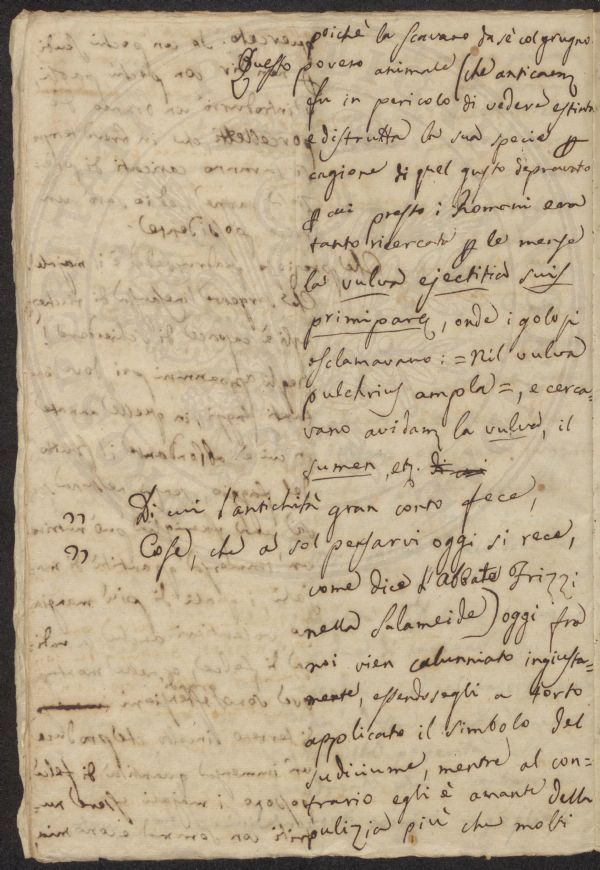 poichè la scavano da sè col grugno.
Questo povero animale (che anticam
fu in pericolo di vedere estinta
e distrutta la sua specie p
cagione di quel gusto depravato
p cui presso i Romani era
tanto ricercata p le mense
la vulva ejectitia suis
primipare, onde i golosi
esclamavano: = Nil vulva
pulchrius ampla =, e cerca-
vano avidam la vulva, il
sumen, etc. di cui
" Di cui l'antichità gran conto fece,
" Cose, che a sol pensarvi oggi si rece,
come dice l'Abbate Frizzi
nella Salameide) oggi fra
noi vien calunniato ingiusta-
mente, essendosegli a torto
applicato il simbolo del
sudiciume, mentre al con-
trario egli è amante della
pulizia più che molti